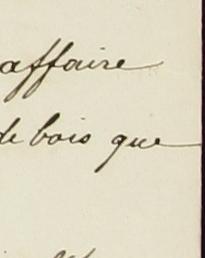 affaire
de bois que